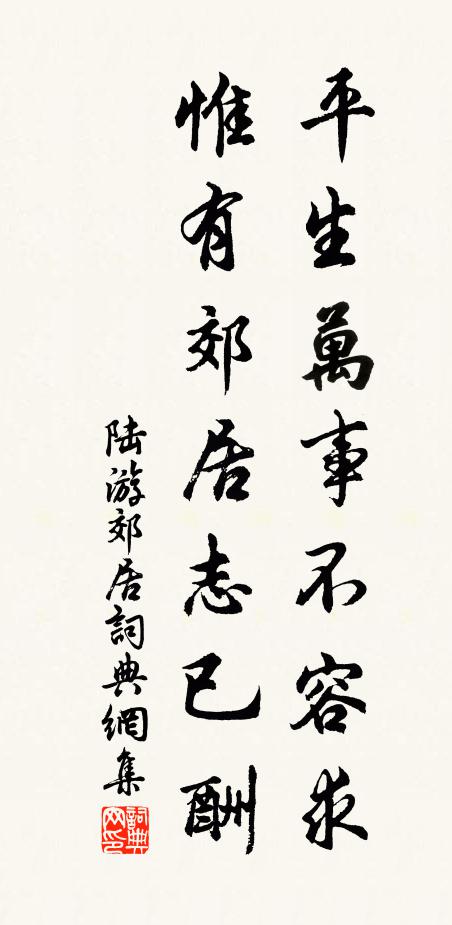 平生萬事不容求
惟有郊居志已酬
陆游郊居詞典網集
詞典网印